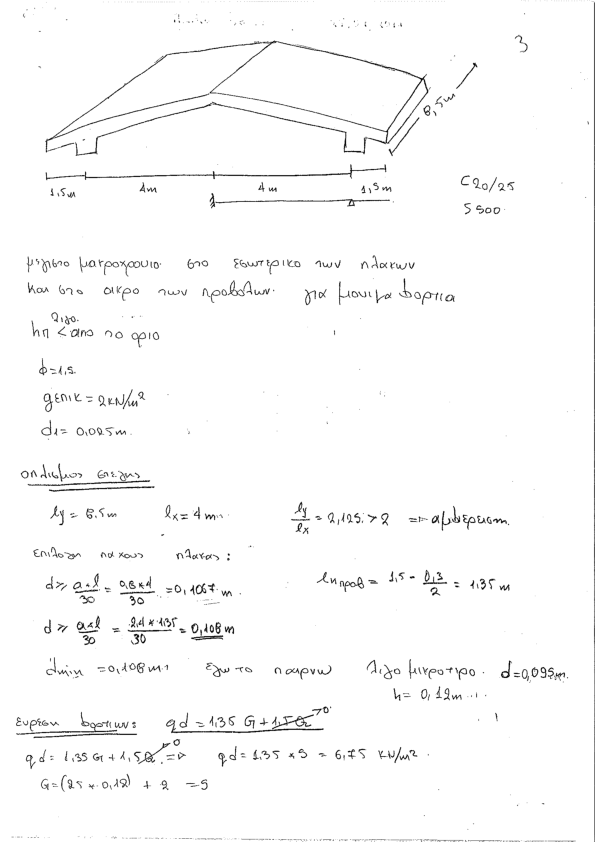 3
8,5m
1,5m 4m 4m 1,5m
C20/25
S500
μεγιστο μακροχρονιο στο εσωτερικο των πλακων
και στο ακρο των προβολων για μονιμα φορτια
λιγο
hπ < απο το οριο
φ=1,5
gεπικ = 2kN/m²
d1 = 0,025m
οπλισμος στεγης
ly = 8.5m lx = 4m ly/lx = 2,125 > 2 => αμφιερειστη
επιλογη παχους πλακας:
d ≥ a*l/30 = 0,8*4/30 = 0,1067 m lπροβ = 1,5 - 0,3/2 = 1,35 m
d ≥ a*l/30 = 2,4*1.35/30 = 0,108m
dmin = 0,108m εγω το παιρνω λιγο μικροτερο d=0,095m
h = 0,12m
ευρεση φορτιων: qd = 1,35 G + 1,5Q →0
qd = 1,35 G + 1,5Q →0 => qd = 1,35 * 5 = 6,75 KN/m²
G = (25 * 0,12) + 2 = 5